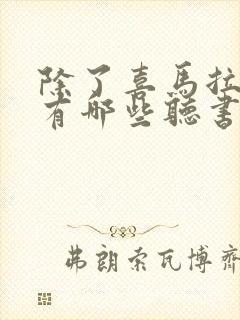 除了喜马拉
有哪些听书
弗朗索瓦博齐